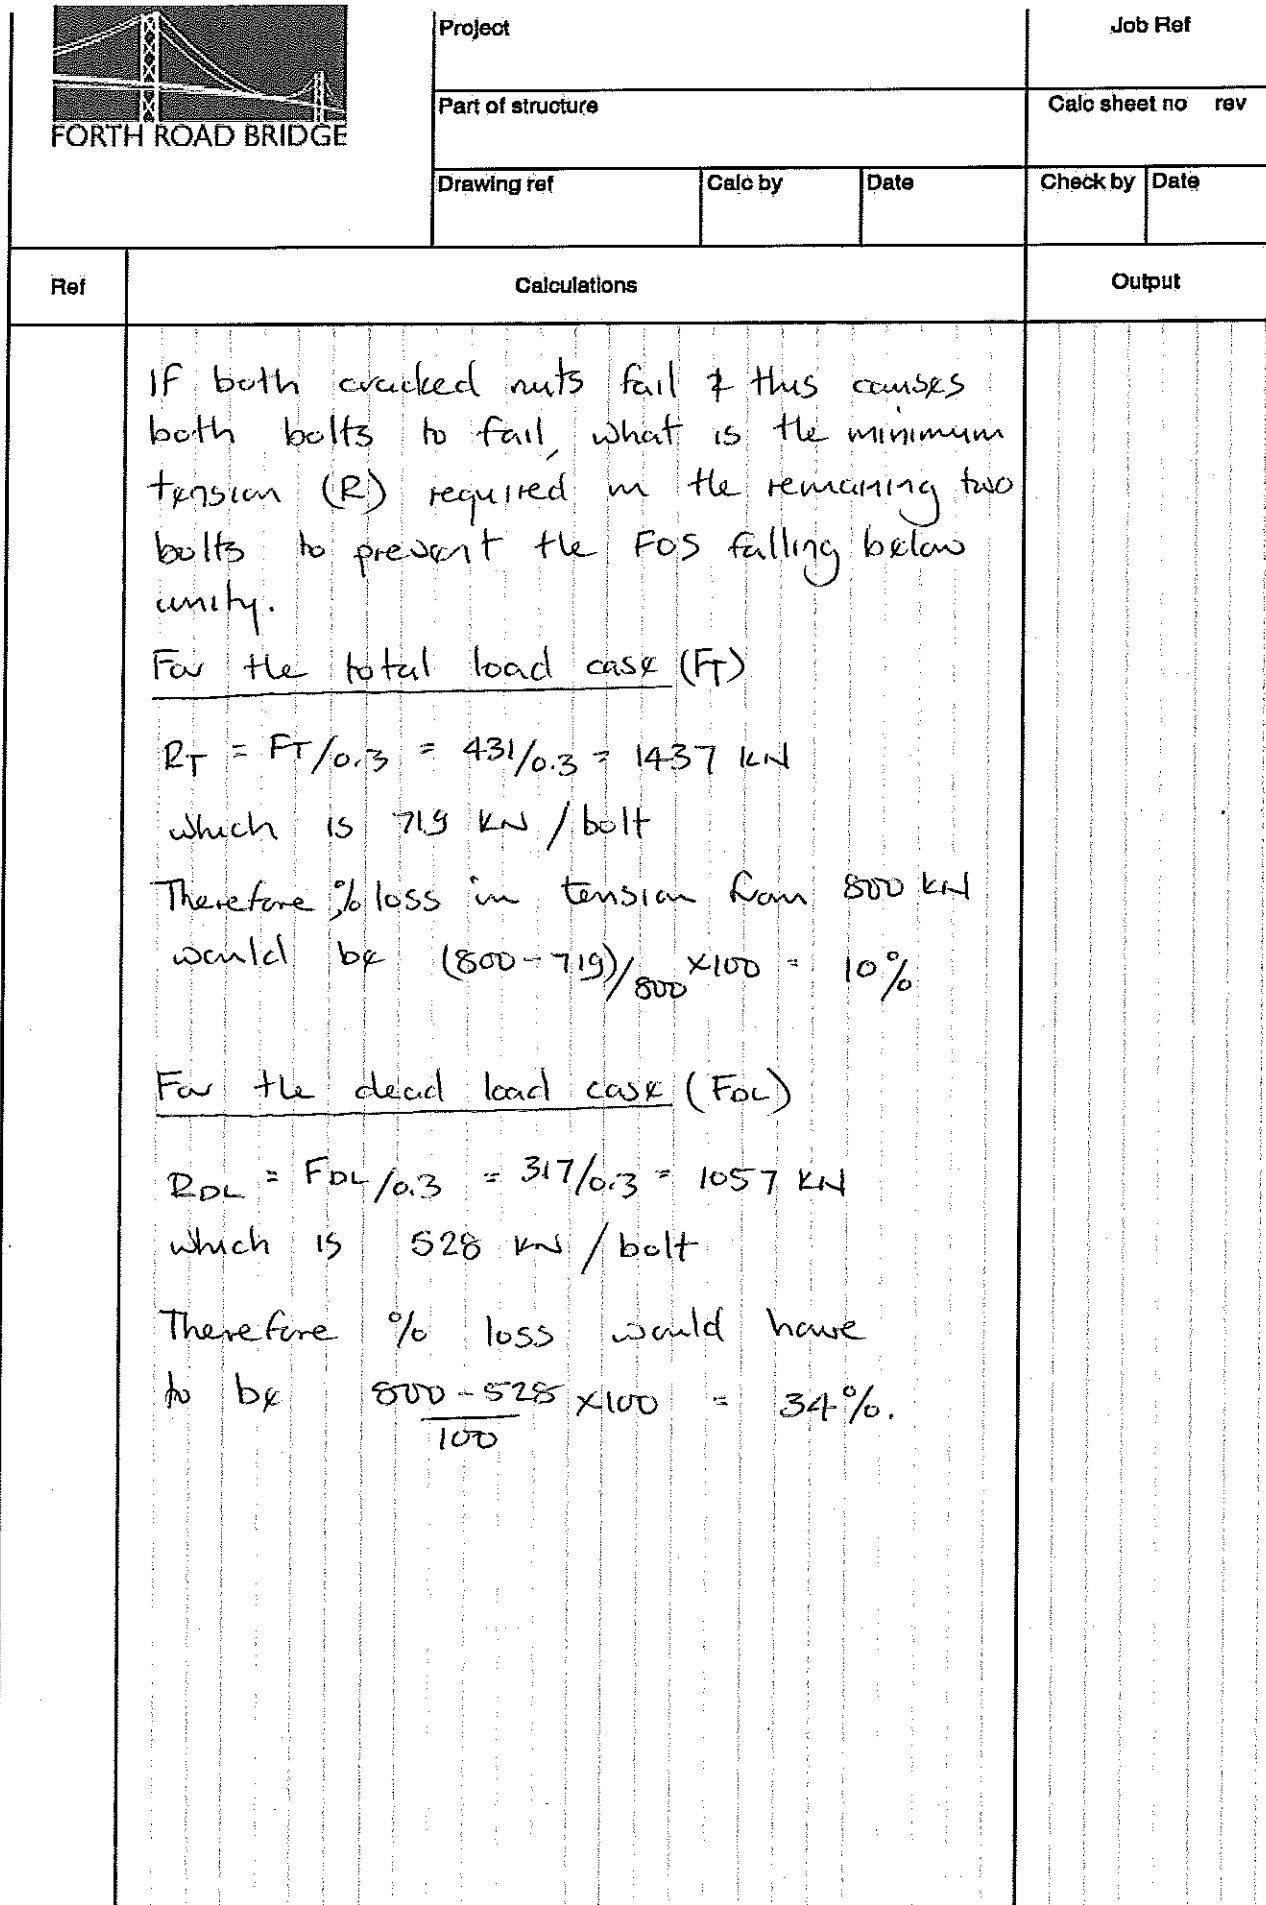 FORTH ROAD BRIDGE
Project
Job Ref
Part of structure
Calc sheet no rev
Drawing ref
Calc by
Date
Check by
Date
Ref
Calculations
Output
If both cracked nuts fail & this causes
both bolts to fail, what is the minimum
tension (R) required in the remaining two
bolts to prevent the FOS falling below
unity.
For the total load case (FT)
RT = FT/0.3 = 431/0.3 = 1437 kN
which is 719 kN / bolt
Therefore % loss in tension from 800 kN
would be (800-719)/800 x100 = 10%
For the dead load case (FDL)
RDL = FDL/0.3 = 317/0.3 = 1057 kN
which is 528 kN / bolt
Therefore % loss would have
to be 800-528 x100 = 34%.
100